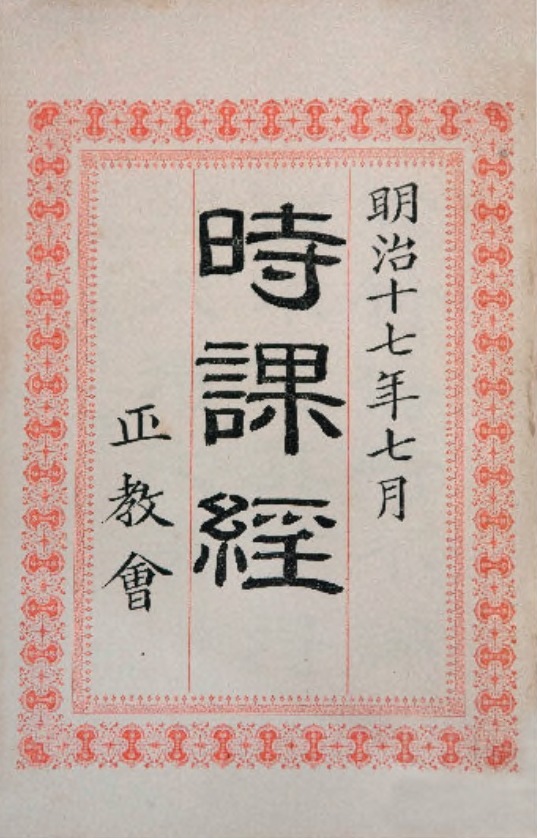 明治十七年七月
時課經
正教會